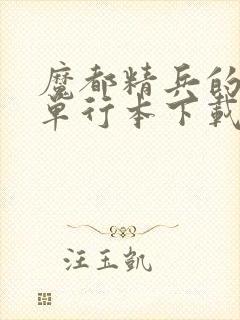 魔都精兵的
单行本下載
汪玉凯